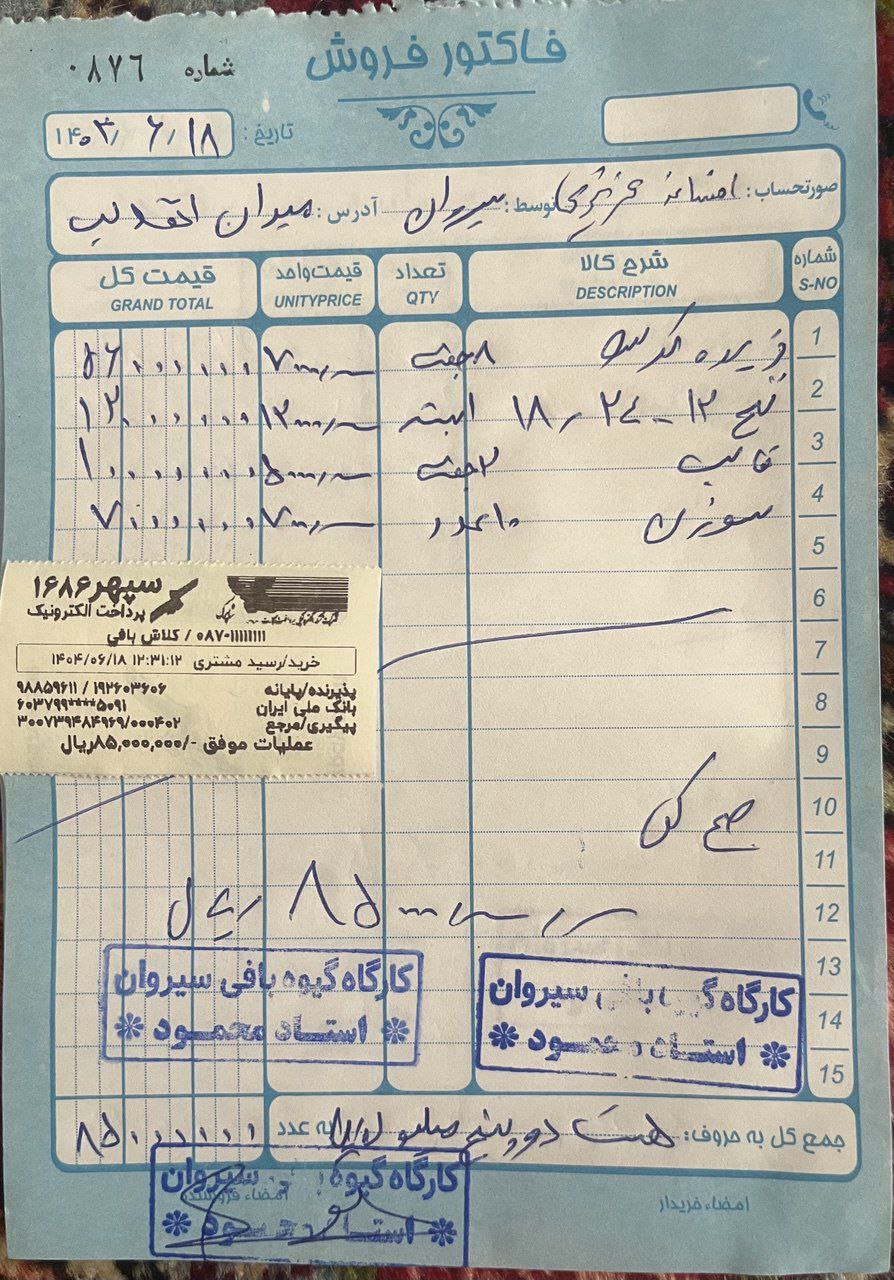 فاکتور فروش
شماره ۰۸۷۶
تاریخ: ۱۴۰۳/۶/۱۸
صورتحساب: توسط: سیروان آدرس: میدان انقلاب
شماره S-NO شرح کالا DESCRIPTION تعداد QTY قیمت واحد UNITYPRICE قیمت کل GRAND TOTAL
1 ۸ جفت ۷۰۰۰،۰۰۰ ۵۶،۰۰۰،۰۰۰
2 نخ ۱۸ ۱۲ ۱ بسته ۱۲۰۰۰،۰۰۰ ۱۲،۰۰۰،۰۰۰
3 قالب ۲ جفت ۵۰۰۰،۰۰۰ ۱۰،۰۰۰،۰۰۰
4 سوزن ۱۰ عدد ۷۰۰،۰۰۰ ۷،۰۰۰،۰۰۰
5
6
7
8
9
10
11
12
13
14
15
سپهر ۱۶۸۶
پرداخت الکترونیک
۰۸۷-۱۱۱۱۱۱۱۱ / کلاش بافی
خرید/رسید مشتری ۱۴۰۴/۰۶/۱۸ ۱۲:۳۱:۱۲
پذیرنده/پایانه ۹۸۸۵۹۶۱۱ / ۱۹۲۶۰۳۶۰۶
بانک ملی ایران ۶۰۳۷۹۹****۵۰۹۱
پیگیری/مرجع ۳۰۰۷۳۹۴۸۴۹۶۹/۰۰۰۴۰۲
عملیات موفق -/۸۵,۰۰۰,۰۰۰ریال
جمع کل
۸۵۰۰۰،۰۰۰ ریال
کارگاه گیوه بافی سیروان
استاد محمود
کارگاه گیوه بافی سیروان
استاد محمود
جمع کل به حروف: هشتاد و پنج میلیون ریال به عدد ۸۵،۰۰۰،۰۰۰
امضاء خریدار امضاء فروشنده
کارگاه گیوه بافی سیروان
استاد محمود